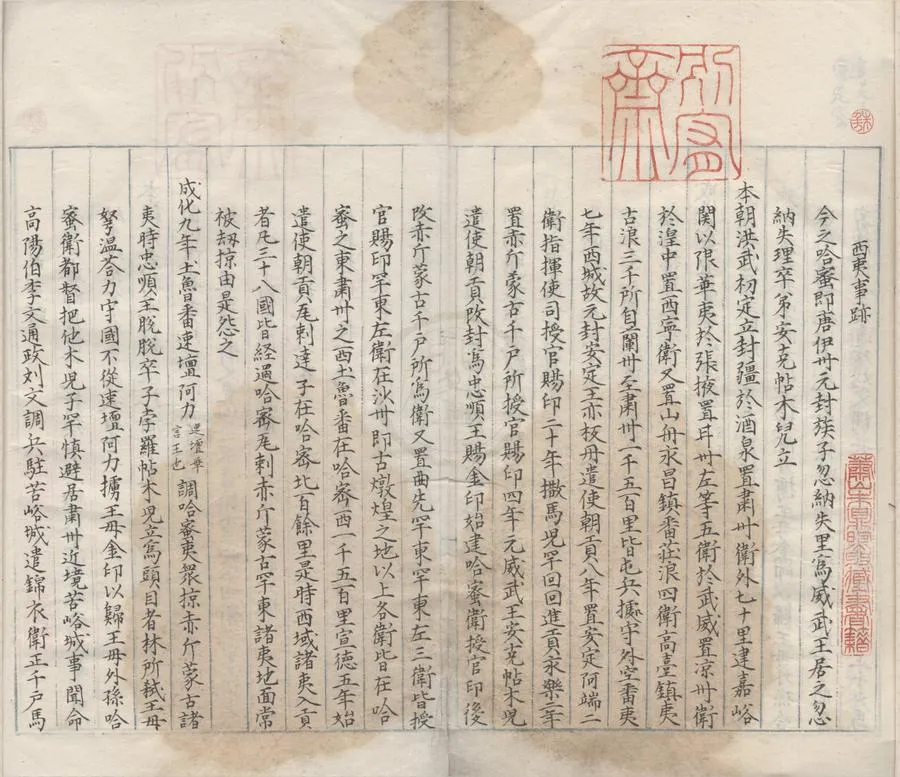 西夷事跡
今之哈蜜即唐伊州元封族子忽納失里為威武王居之忽
納失理卒弟安克帖木兒立
本朝洪武初定立封疆於酒泉置肅州衛外七十里建嘉峪
関以限華夷於張掖置甘州左等五衛於武威置凉州衛
於湟中置西寧衛又置山丹永昌鎮番莊浪四衛高臺鎮夷
古浪三千所自蘭州至肅州一千五百里皆屯兵據守外空番夷
七年西域故元封安定王亦板丹遣使朝貢八年置安定阿端二
衛指揮使司授官賜印二十年撒馬兒罕回回進貢永樂二年
置赤斤蒙古千戶所授官賜印四年元威武王安克帖木兒
遣使朝貢改封為忠順王賜金印始建哈蜜衛授官印後
改赤斤蒙古千戶所為衛又置曲先罕東罕東左三衛皆授
官賜印罕東左衛在沙州即古燉煌之地以上各衛皆在哈
蜜之東肅州之西土魯番在哈密西一千五百里宣德五年始
遣使朝貢瓦剌達子在哈密北百餘里是時西域諸夷入貢
者凡三十八國皆経過哈密瓦剌赤斤蒙古罕東諸夷地面常
被刼掠由是怨之
成化九年土魯番速壇阿力速壇華言王也調哈蜜夷衆掠赤斤蒙古諸
夷時忠順王脫脫卒子孛羅帖木兒立為頭目者林所弒王母
弩溫荅力守國不從速壇阿力擄王母金印以歸王母外孫哈
蜜衛都督把他木兒子罕慎避居肅州近境苦峪城事聞命
高陽伯李文通政刘文調兵駐苦峪城遣錦衣衛正千戶馬